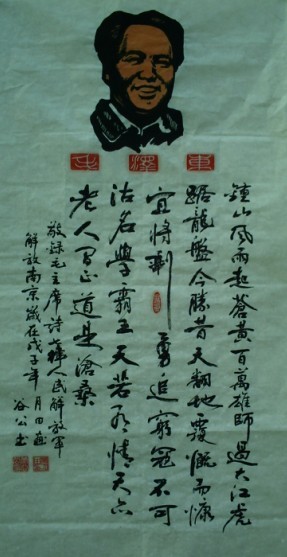 毛澤東
鐘山風雨起蒼黄百萬雄師過大江虎
踞龍盤今勝昔天翻地覆慨而慷
宜將剩勇追窮寇不可
沽名學霸王天若有情天亦
老人間正道是滄桑
敬錄毛主席詩律人民解放軍
解放南京歲在戊子年月日
谷公書